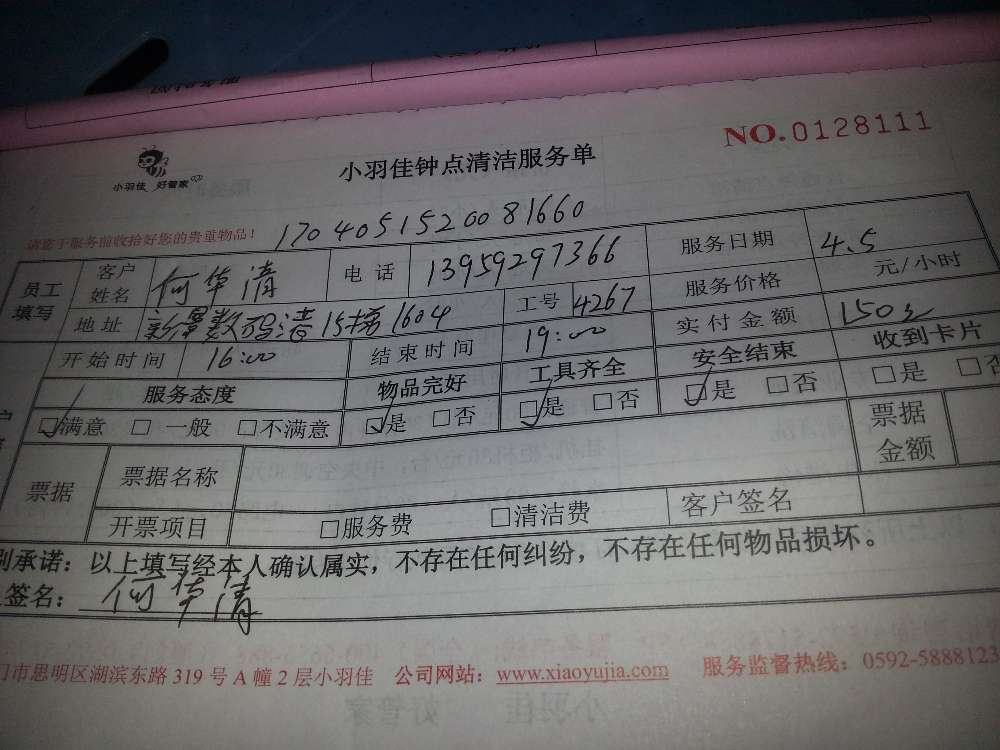 NO.0128111
小羽佳 好管家
小羽佳钟点清洁服务单
请您于服务前收拾好您的贵重物品！ 1704051520081660
员工填写 客户姓名 何华清 电话 13959297366 服务日期 4.5
地址 新景数码港15楼1604 工号 4267 服务价格 元/小时
开始时间 16:00 结束时间 19:00 实付金额 150元
服务态度 物品完好 工具齐全 安全结束 收到卡片
☑满意 □一般 □不满意 ☑是 □否 ☑是 □否 ☑是 □否 □是 □否
票据 票据名称 票据金额
开票项目 □服务费 □清洁费 客户签名
承诺：以上填写经本人确认属实，不存在任何纠纷，不存在任何物品损坏。
签名： 何华清
门市思明区湖滨东路 319 号 A 幢 2 层小羽佳 公司网站：www.xiaoyujia.com 服务监督热线：0592-5888123